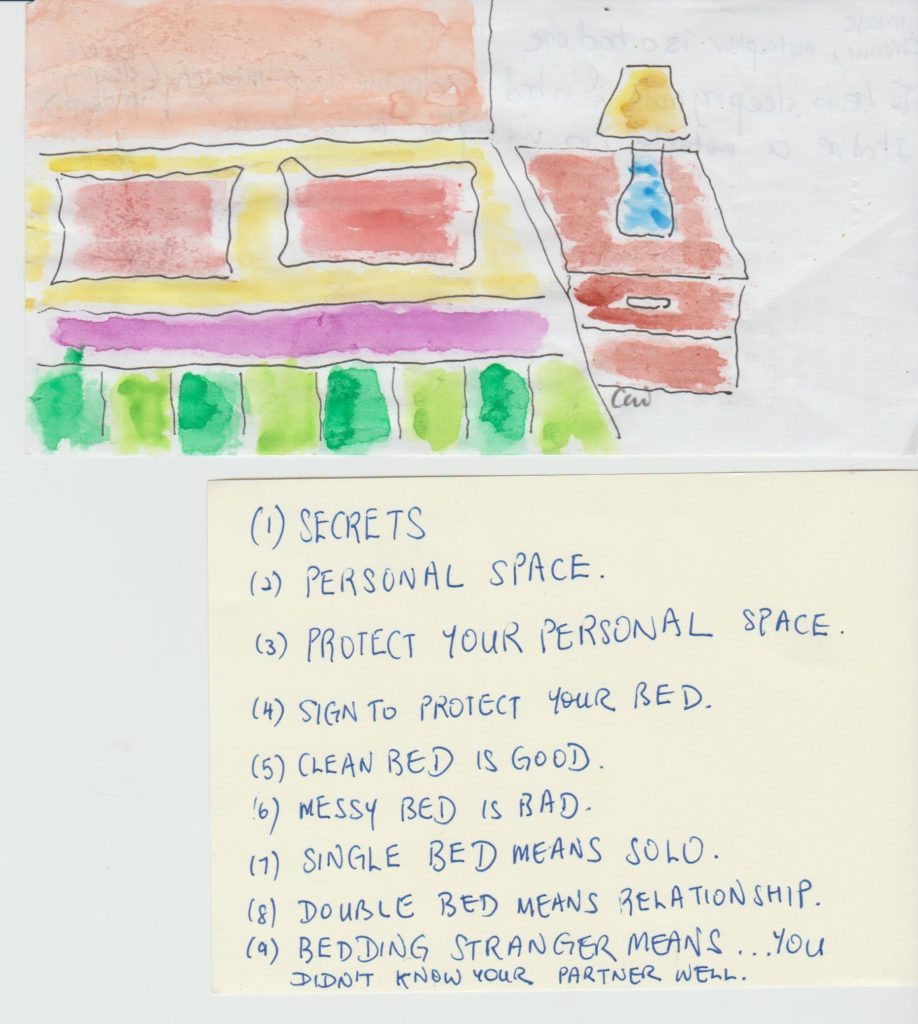 is a bad one
Caw
(1) SECRETS
(2) PERSONAL SPACE.
(3) PROTECT YOUR PERSONAL SPACE.
(4) SIGN TO PROTECT YOUR BED.
(5) CLEAN BED IS GOOD.
(6) MESSY BED IS BAD.
(7) SINGLE BED MEANS SOLO.
(8) DOUBLE BED MEANS RELATIONSHIP.
(9) BEDDING STRANGER MEANS...YOU
DIDN'T KNOW YOUR PARTNER WELL.